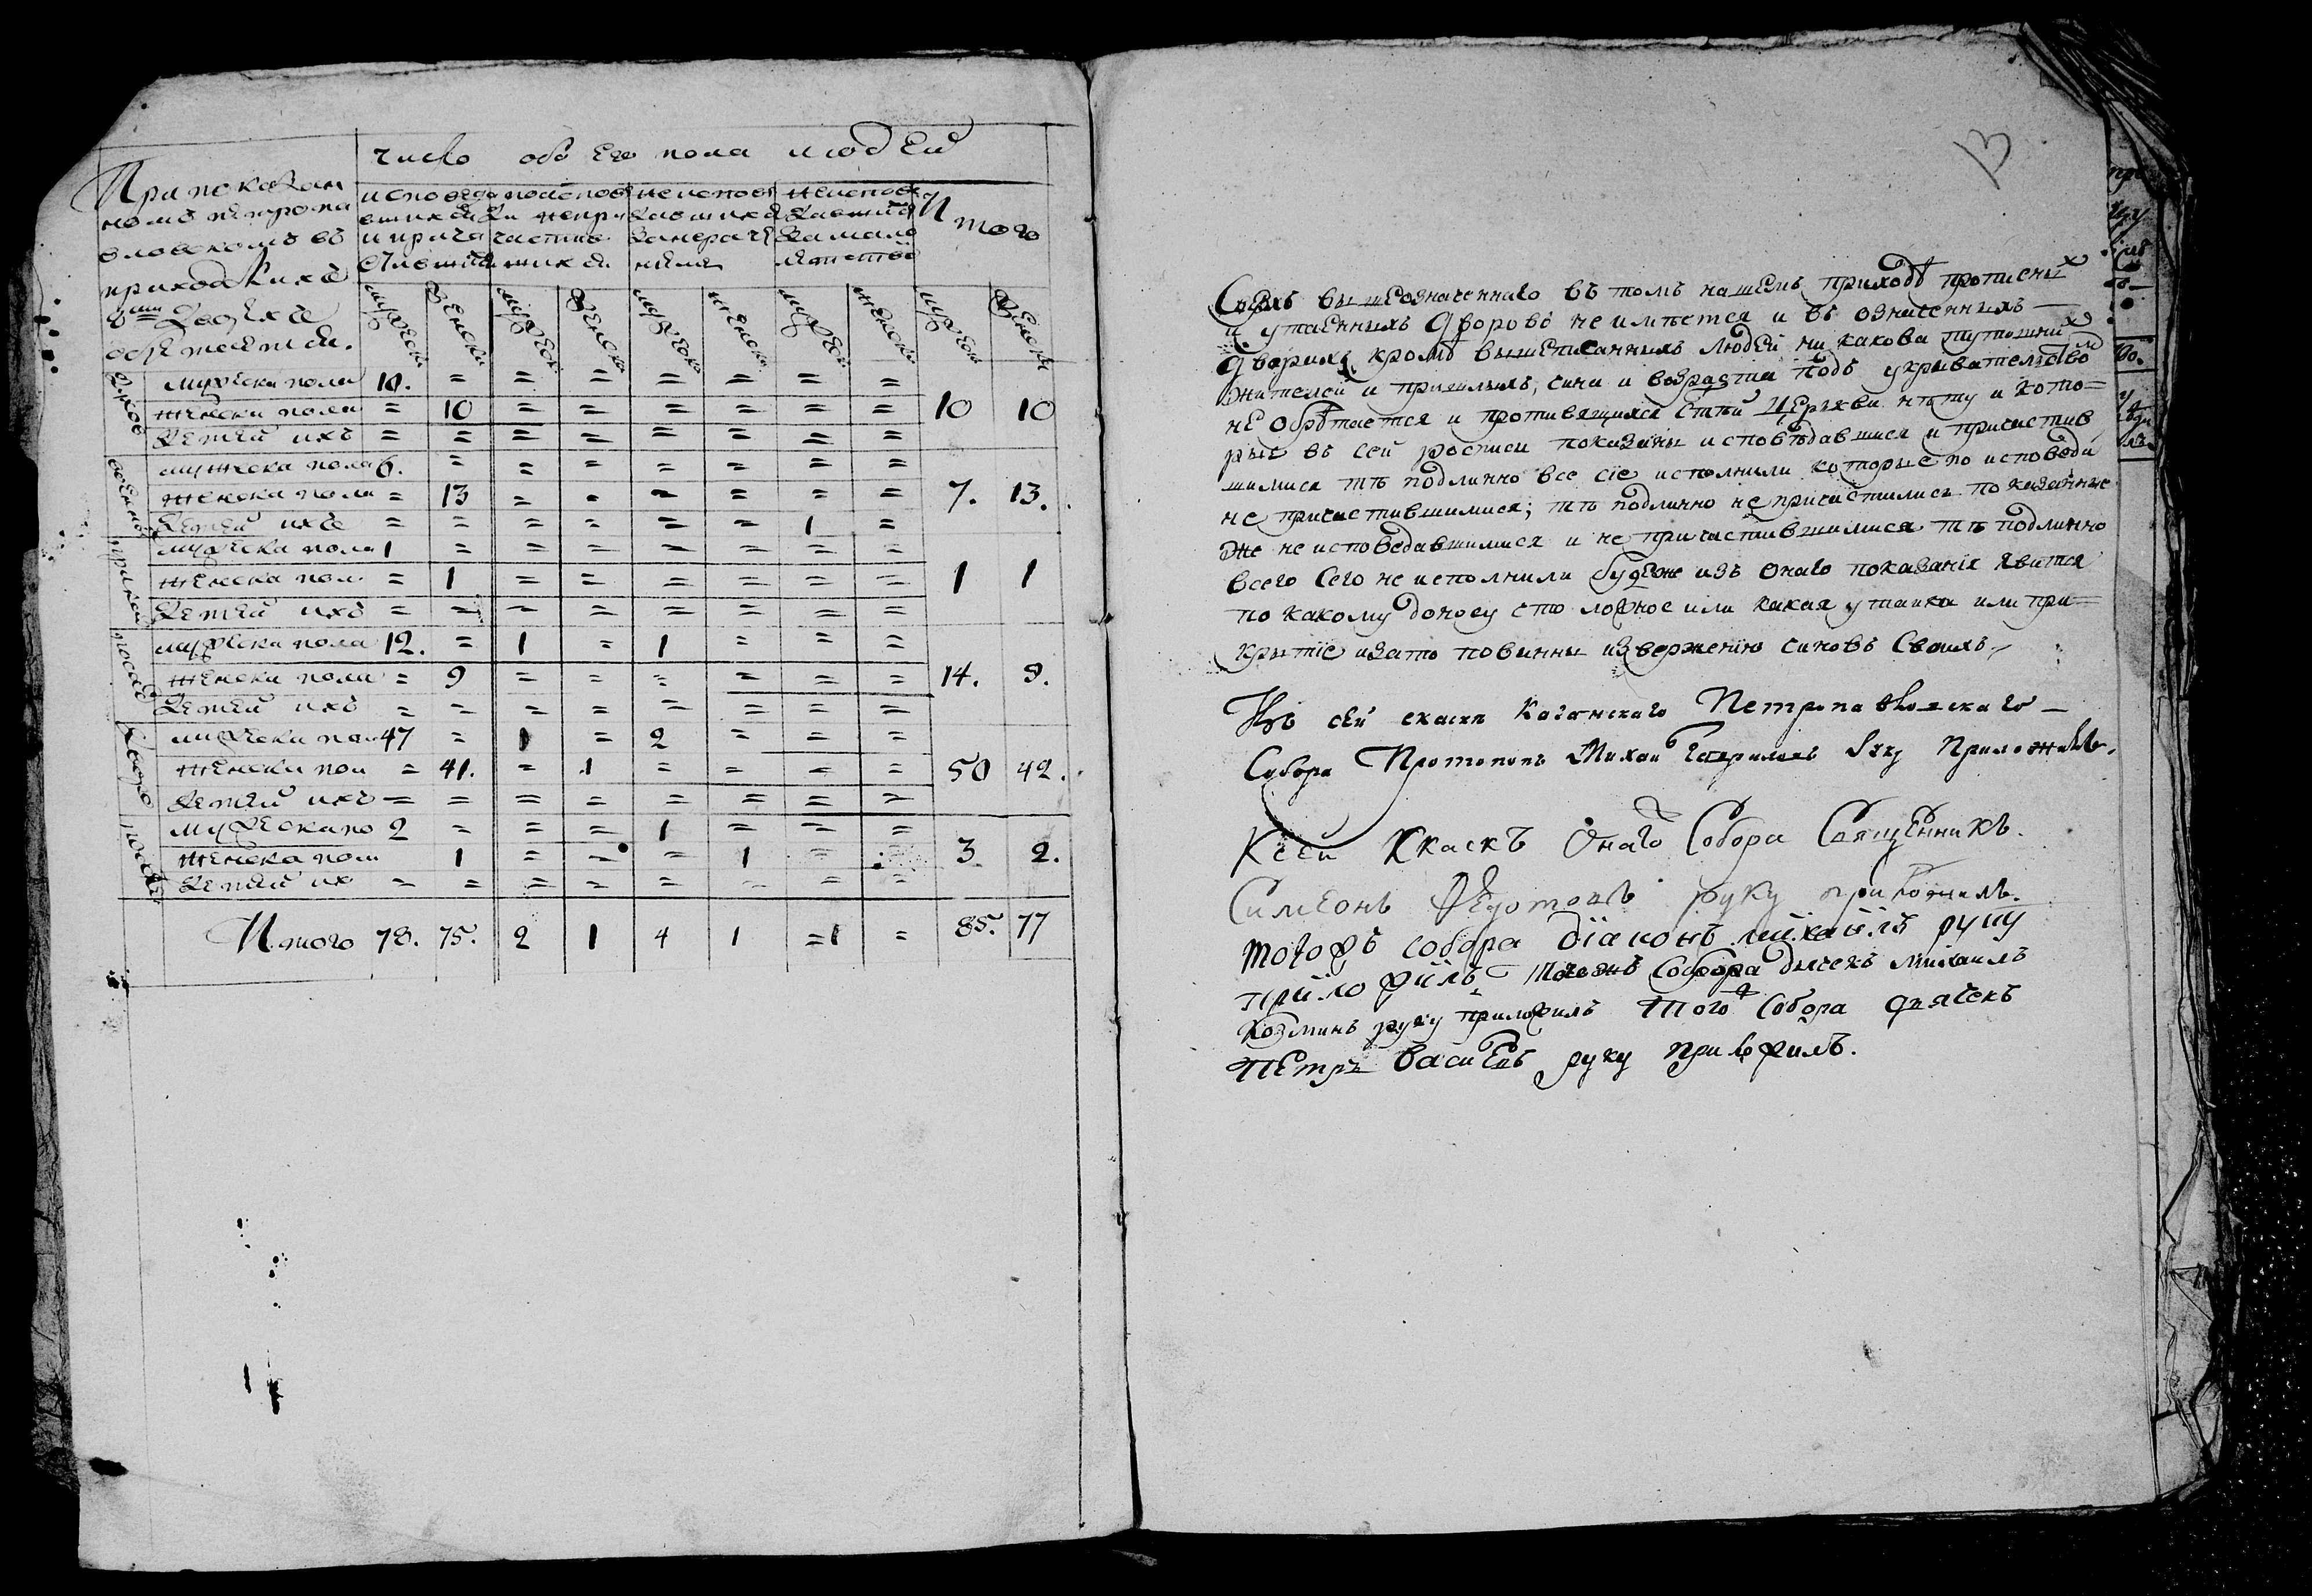 число обоего пола людей
При показан
номъ петропа
вловскомъ въ
приходскихъ
дворехъ
обретаетси.
исповеда
вшихся
и прича
стившихся
по исповеди
не при
частив
шихся
не испове
давшихся
за нераче
ниемъ
не испове
давшихся
за мало
летство
Итого
мужеска женска мужеска женска мужеска женска мужеска женска мужеска женска
духов
мужеска пола 10. = = = = = = =
женска пола = 10 = = = = = = 10 10
детей ихъ = = = = = = = =
военных
мужеска пола 6. = = = = = = =
женска пола = 13 = = = = = = 7. 13.
детей ихъ = = = = = = 1 =
приказн
мужеска пола 1 = = = = = = =
женска пол = 1 = = = = = = 1 1
детей ихъ = = = = = = = =
посад
мужеска пола 12. = 1 = 1 = = =
женска пола = 9 = = = = = = 14. 9.
детей ихъ = = = = = = = =
дворо
мужеска пол 47 = 1 = 2 = = =
женска пол = 41. = 1 = = = = 50 42.
детей ихъ = = = = = = = =
мужеска по 2 = = = 1 = = =
женска пол 1 = = = 1 = = 3 2.
детей их = = = = = = = =
Итого 78. 75. 2 1 4 1 =1 = 85. 77
13
Сверхъ вышеозначеннаго въ томъ нашемъ приходѣ прописных
и утаенныхъ дворовъ не имѣется и въ означенныхъ
дворихъ кромѣ вышеписанныхъ людей ни какова тутошних
жителей и пришлыхъ, чина и возраста подъ укрывателством
не обрѣтается и противящихся Стѣй Церькви нѣту и кото=
рые въ сей росписи показаны исповѣдавшися и причастив
шимися тѣ подлинно все сіе исполнили которые по исповеди
не причастившимися; тѣ подлинно не причастились показанные
же не исповедавшимися и не причастившимися тѣ подлинно
всего сего не исполнили будеже изъ онаго показанія явится
по какому доносу что ложное или какая утайка или при=
крытіе изато повинны извержению чиновъ своихъ
Къ сей скаскѣ Казанскаго Петропавловскаго
Собора Протопопъ Михаи Гавриловъ руку приложилъ.
К сей скаскѣ Онаго Собора Священникъ
Симеонъ Федотовъ руку приложилъ.
тогожъ собора діаконъ михаилъ руку
приложилъ тогожъ Собора дьячекъ михаилъ
Козминъ руку приложилъ Того ж Собора дьячекъ
Петръ Василевъ руку приложилъ.